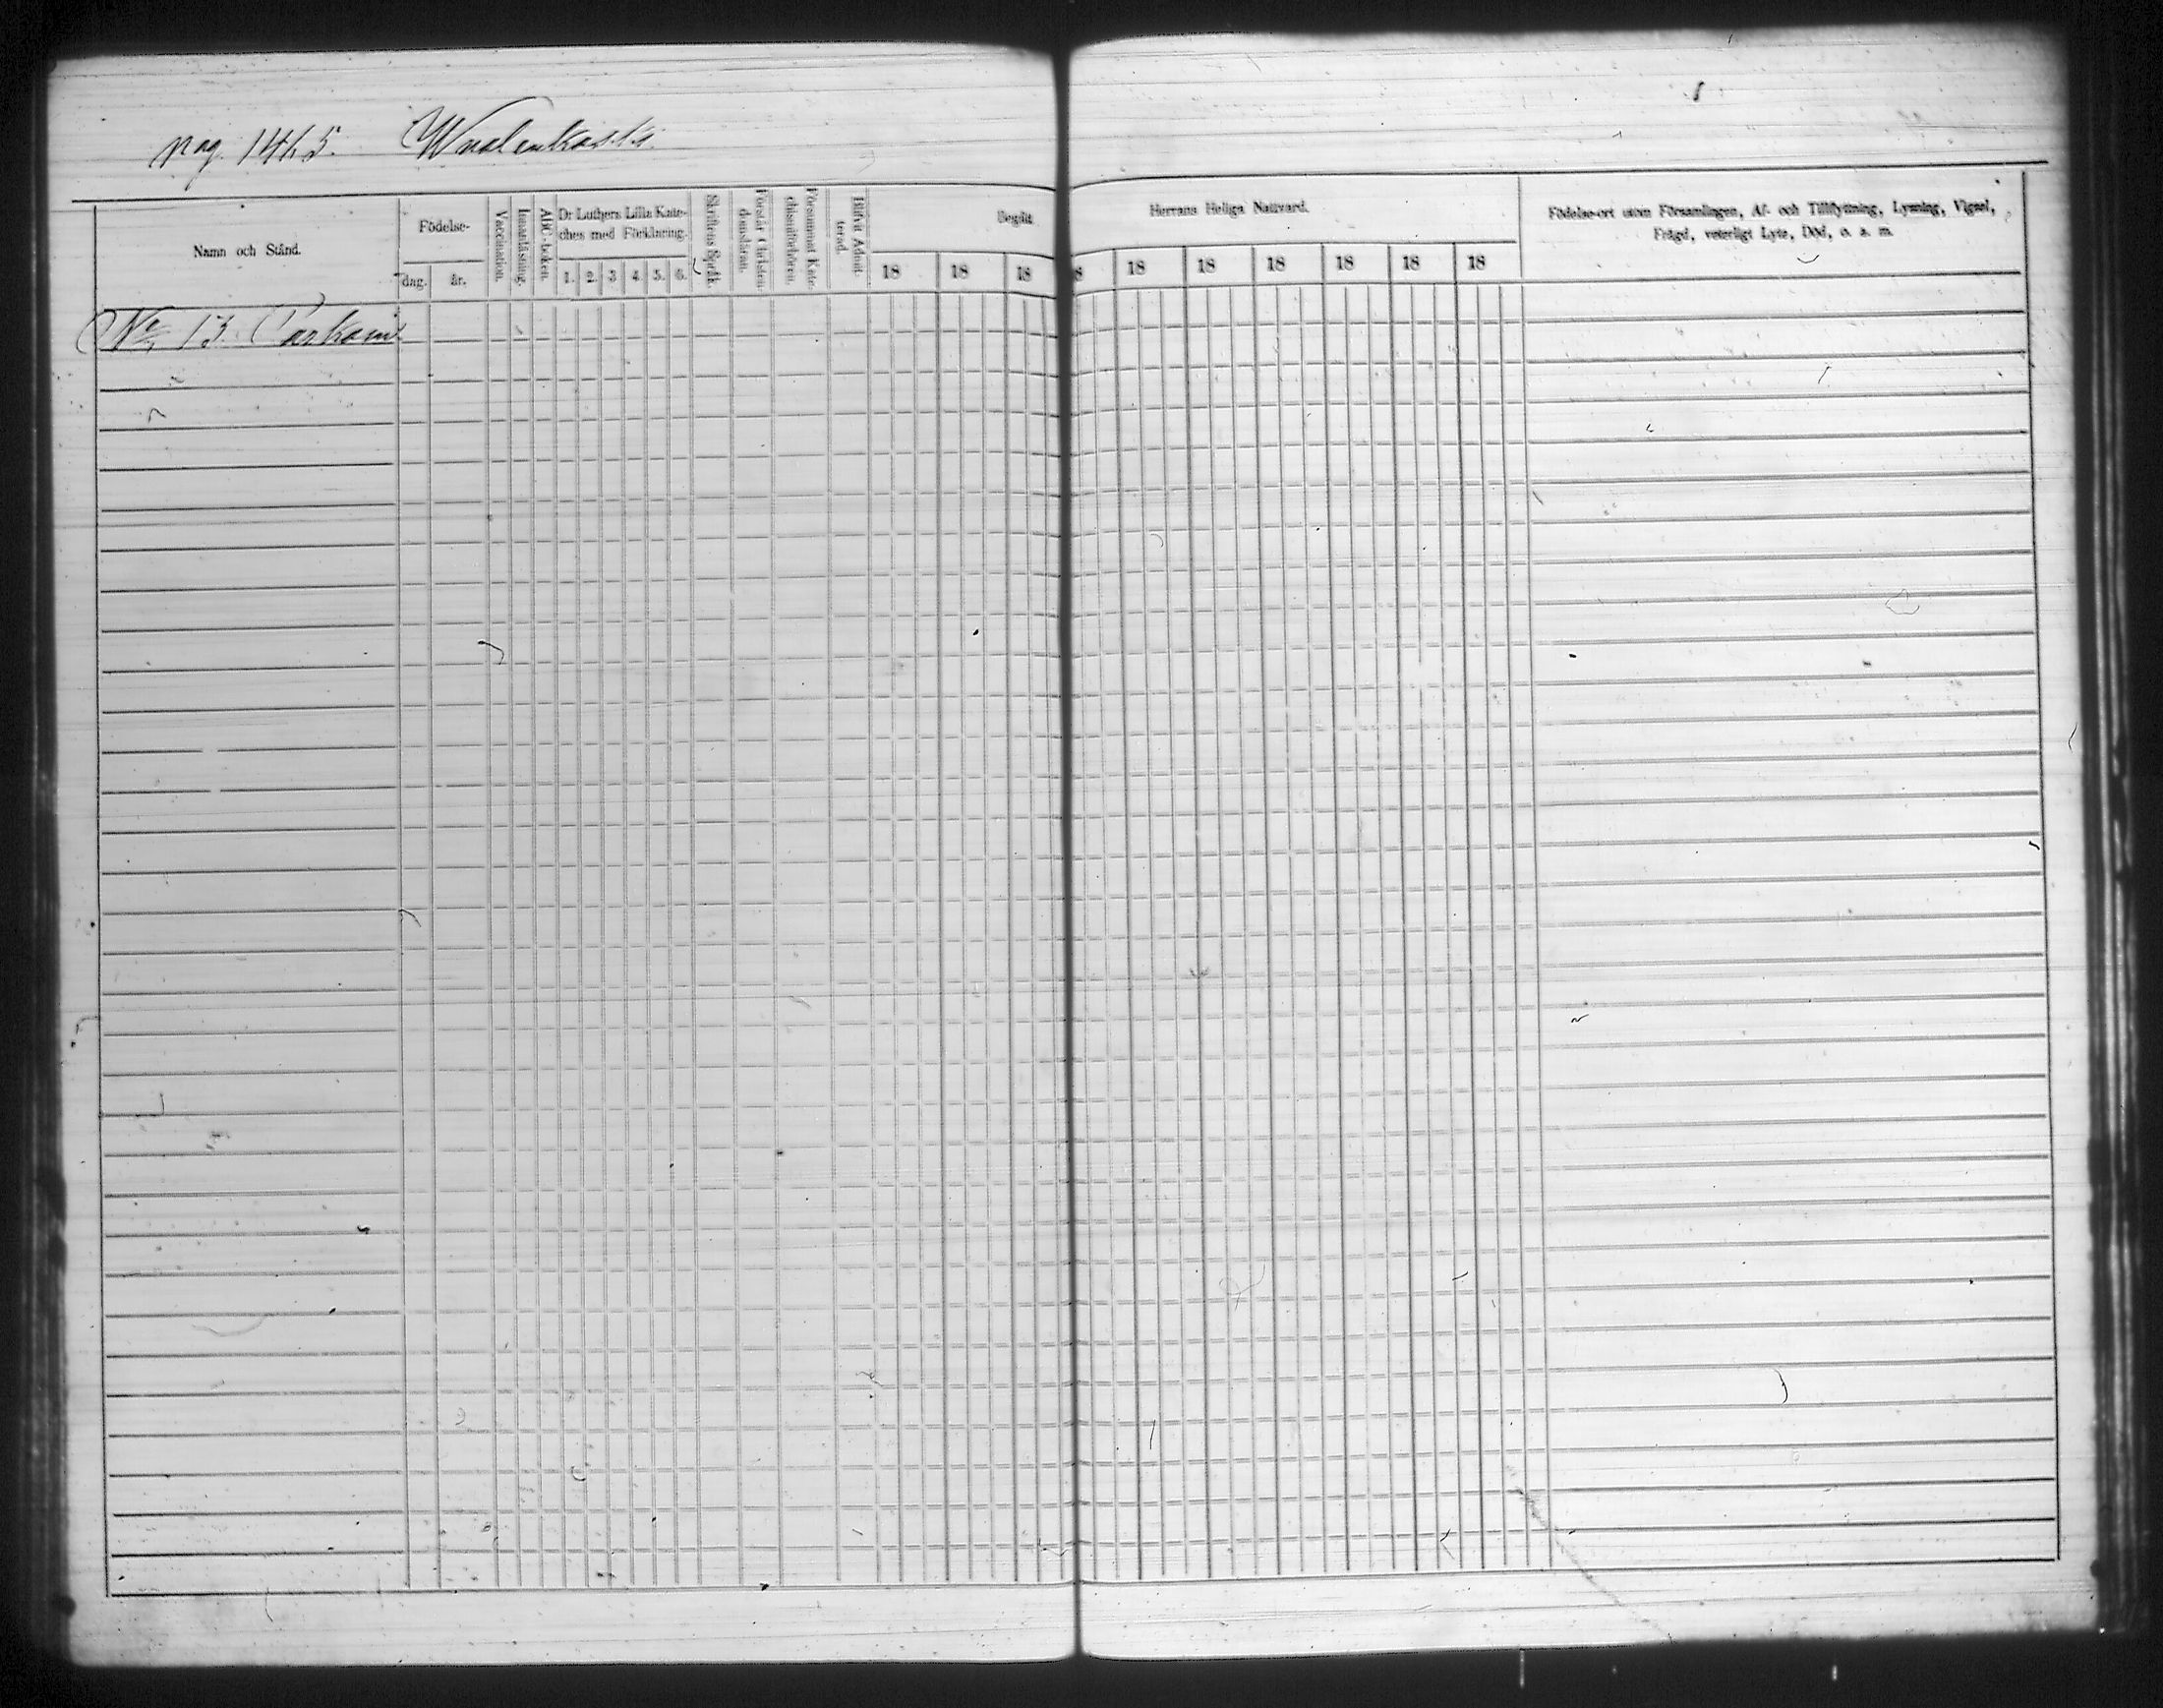 pag. 1465. Wuolenkoski.
Namn och Stånd.
Födelse-
dag.
år.
Vaccination.
Innanläsning.
ABC-boken.
Dr Luthers Lilla Kate-
ches med Förklaring.
1. 2. 3 4. 5. 6.
Skriftens Språk.
Förstår Christen-
domsläran.
Försummat Kate-
chismiförhören.
Blifvit Admit-
terad.
Begått
Herrans Heliga Nattvard.
18 18 18 18 18 18 18 18 18
Födelse-ort utom Församlingen, Af- och Tillflyttning, Lysning, Vigsel,
Frägd, veterligt Lyte, Död, o. s. m.
No 13.